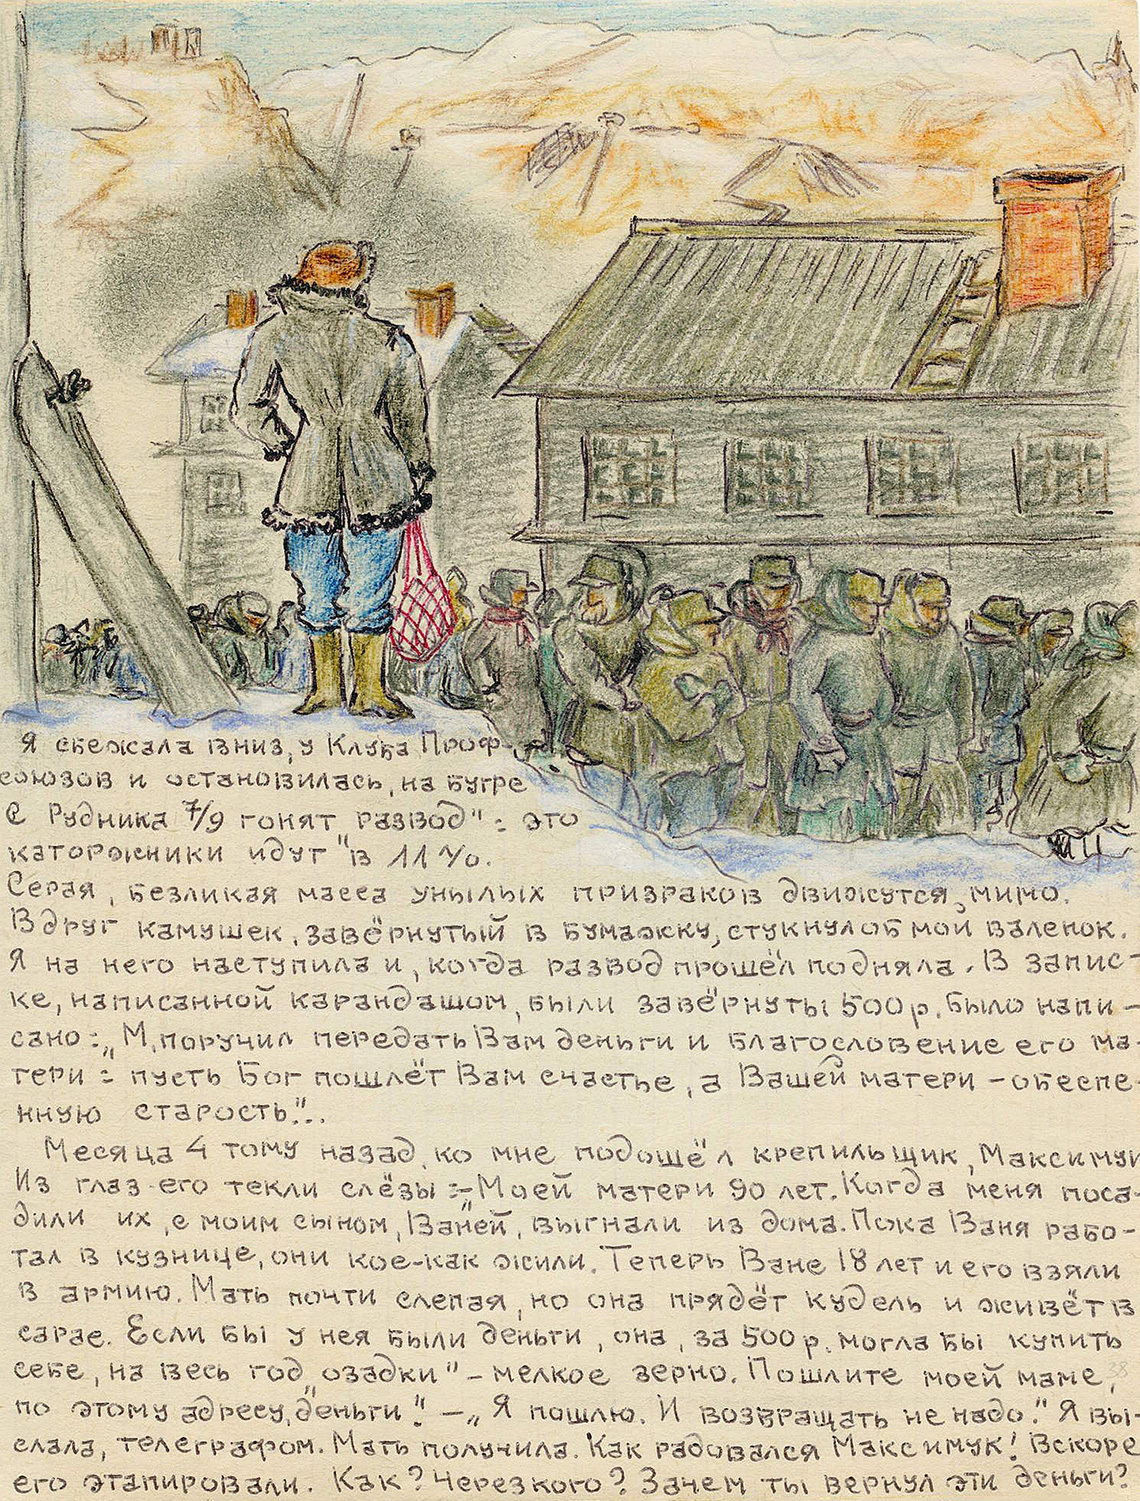 Я сбежала вниз, у Клуба Проф-
союзов и остановилась, на бугре
С Рудника 7/9 гонят „развод": это
каторжники идут "в 11 %.
Серая, безликая масса унылых призраков движутся, мимо.
Вдруг камушек, завёрнутый в бумажку, стукнул об мой валенок.
Я на него наступила и, когда развод прошёл подняла. В запис-
ке, написанной карандашом, были завёрнуты 500 р. было напи-
сано: „М. поручил передать Вам деньги и благословение его ма-
тери: пусть Бог пошлёт Вам счастье, а Вашей матери – обеспе-
нную старость"..
Месяца 4 тому назад, ко мне подошёл крепильщик, Максимук
Из глаз его текли слёзы: „Моей матери 90 лет. Когда меня поса-
дили их, с моим сыном, Ваней, выгнали из дома. Пока Ваня рабо-
тал в кузнице, они кое-как жили. Теперь Ване 18 лет и его взяли
в армию. Мать почти слепая, но она прядёт кудель и живёт в
сарае. Если бы у нея были деньги, она, за 500 р. могла бы купить
себе, на весь год „озадки" – мелкое зерно. Пошлите моей маме,
по этому адресу, деньги"! – „Я пошлю. И возвращать не надо." Я вы-
слала, телеграфом. Мать получила. Как радовался Максимук! Вскоре
его этапировали. Как? Через кого? Зачем ты вернул эти деньги?
38